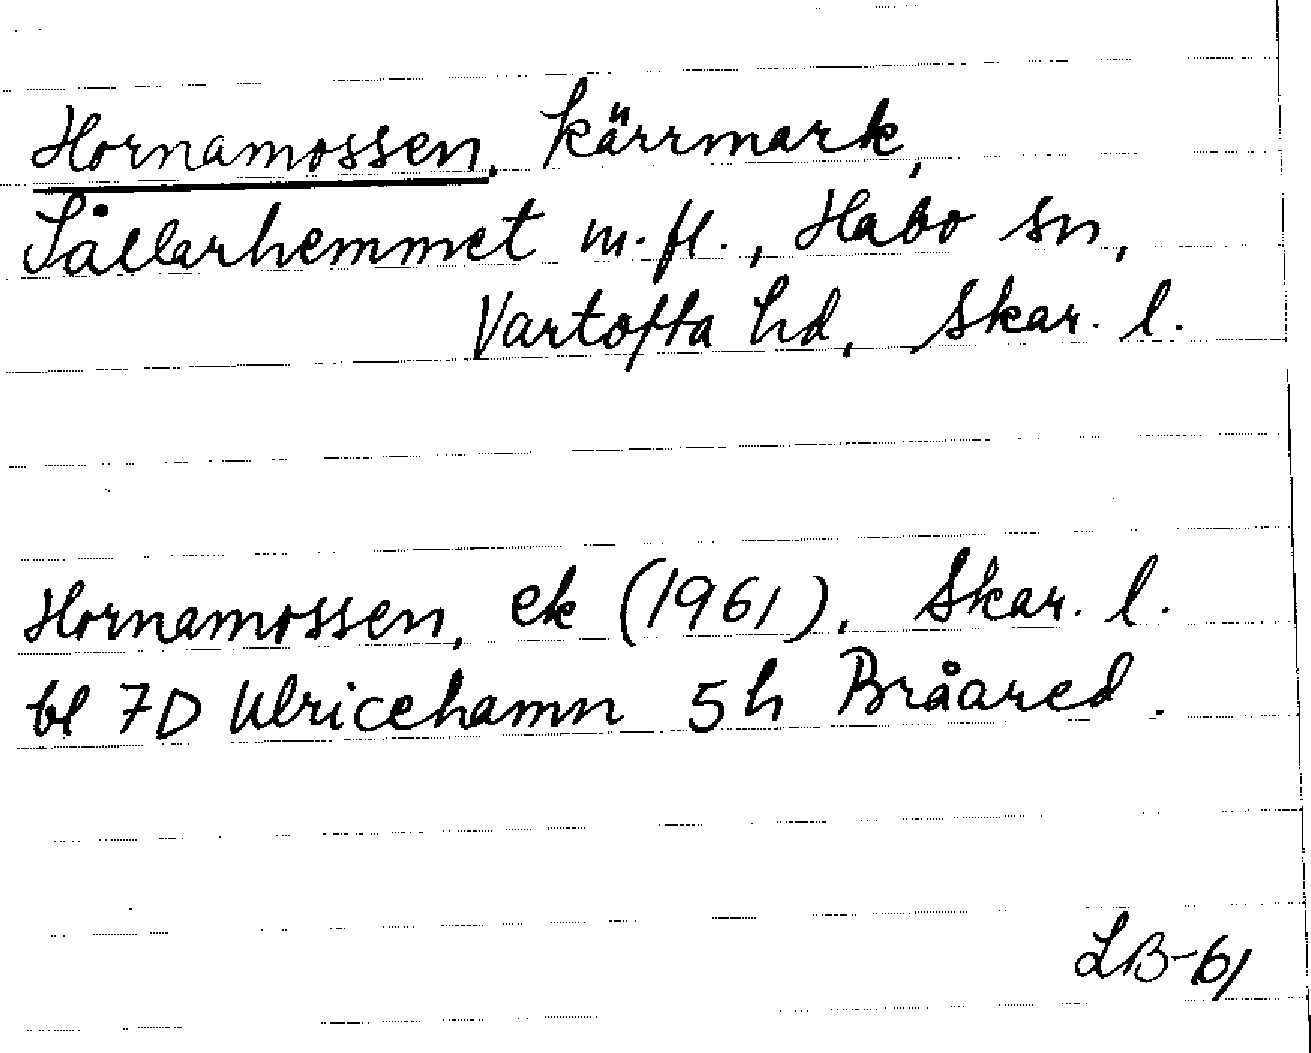 Hornamossen, kärrmark,
Sållarhemmet m.fl., Habo sn,
Vartofta hd, Skar. l.
Hornamossen, ek (1961), Skar. l.
bl 7D Ulricehamn 5h Bråared.
LB-61